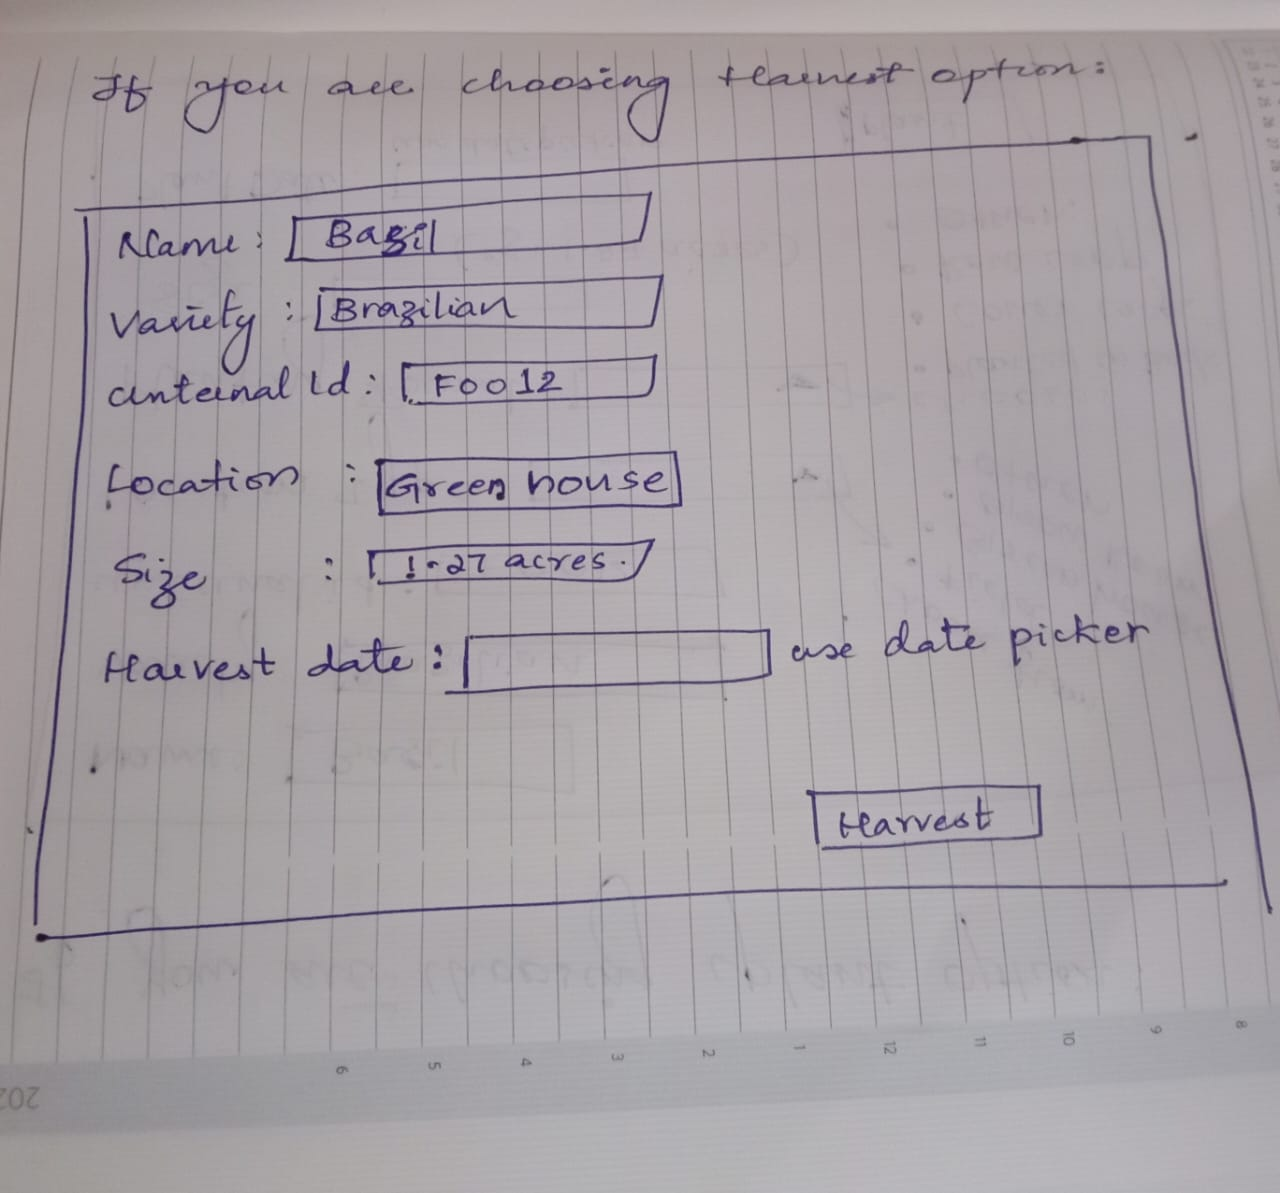 If you are choosing Harvest option:
Name: Basil
Variety: Brazilian
Internal Id: F0012
Location: Green house
Size: 1.27 acres.
Harvest date: use date picker
Harvest
6 5 4 3 2 1 12 11 10 9 8
202